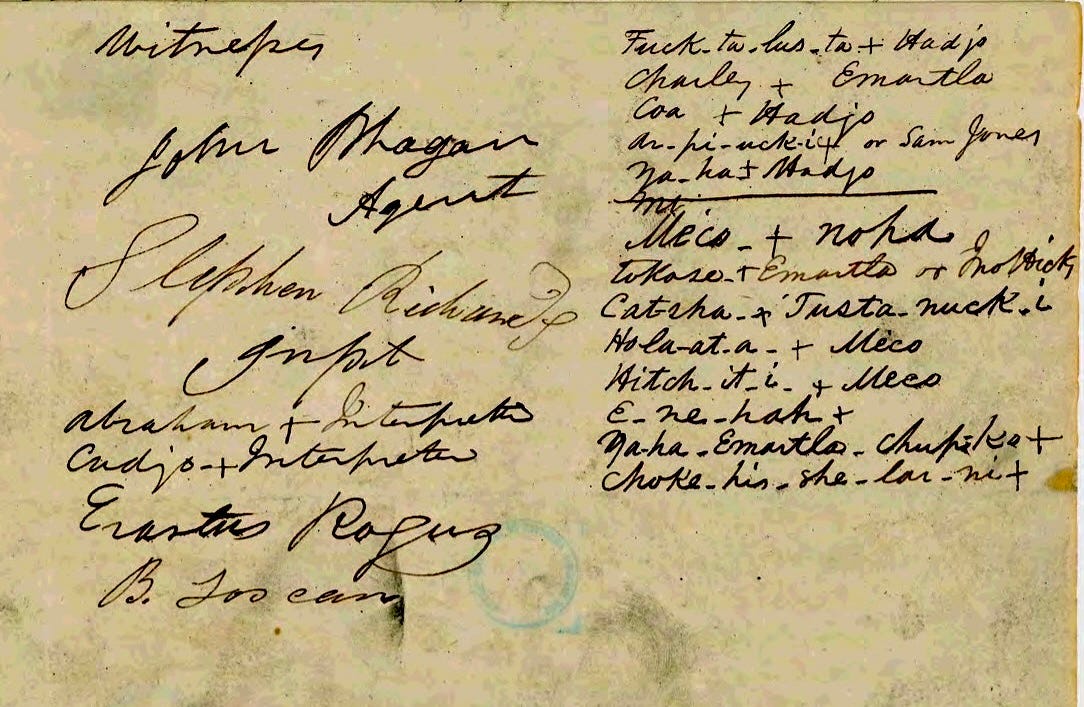 Witnesses
John Phagan
Agent
Stephen Richards
Intpt
Abraham + Interpreter
Cudjo + Interpreter
Erastus Rogers
B. Joscan
Fuck-ta-lus-ta + Hadjo
Charley + Emartla
Coa + Hadjo
Ar-pi-uck-i + or Sam Jones
Ya-ha + Hadjo
Mi
Meco - + noha
Tokose - + Emartla or Jno Hicks
Catsha - + Tusta-nuck-i
Hola-at-a - + Meco
Hitch-it-i - + Meco
E-ne-hah +
Yaha-Emartla-Chupko +
Choke-his-she-lar-ni +